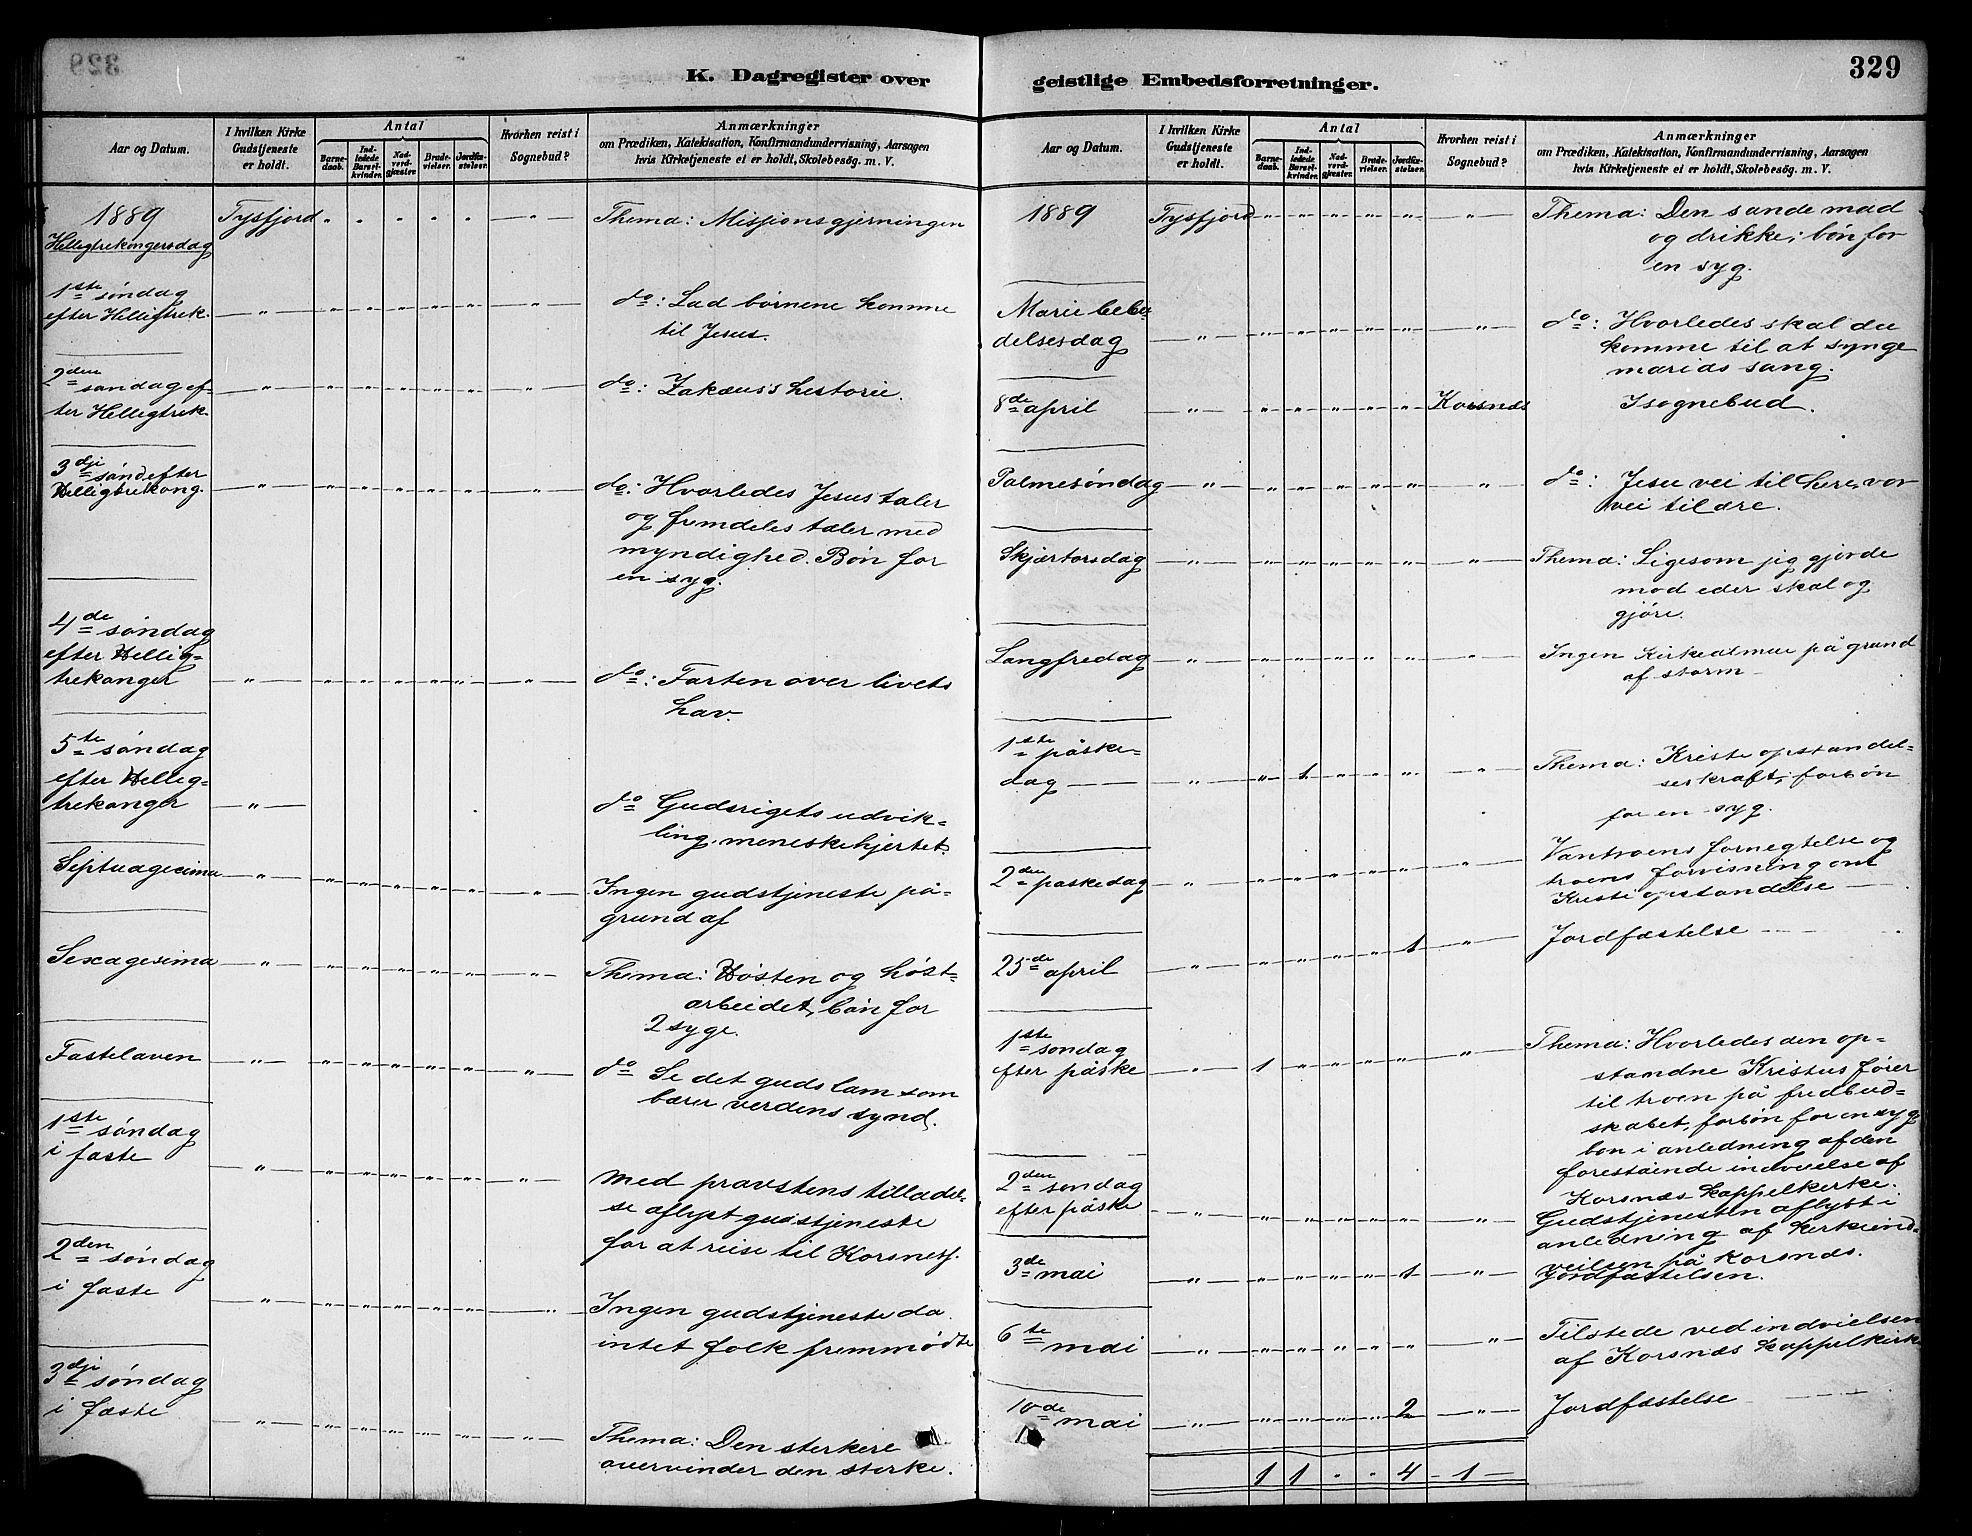 K. Dagregister over
Aar og Datum.
I hvilken Kirke
Gudstjeneste
er holdt.
Antal
Barne-
daab.
Ind-
ledede
Barsel-
kvinder.
Nad-
verd-
gjæster.
Brude-
vielser.
Jordfæ-
stelser.
Hvorhen reist i
Sognebud?
Anmærkninger
om Prædiken, Katekisation, Konfirmandundervisning, Aarsagen
hvis Kirketjeneste ei er holdt, Skolebesøg. m. V.
1889
Helligtrekongersdag
Tysfjord " " " " " "
Thema: Missionsgjerningen
1ste søndag
efter Helligtrek.
" " " " " " "
do: Lad børnene komme
til Jesus.
2den
søndag ef-
ter Helligtrek.
" " " " " " "
do: Zakæus's historie.
3dji sønd efter
Helligtrekong.
" " " " " " "
do: Hvorledes Jesus taler
og fremdeles taler med
myndighed. Bøn for
en syg.
4de søndag
efter Hellig-
trekonger
" " " " " " "
do: Farten over livets
hav.
5te søndag
efter Hellig-
trekonger
"
do Gudsrigets udvik-
ling, meneskehjertet.
Septuagesima
" " " " " " "
Ingen gudstjeneste på-
grund af
Sexagesima
" " " " " " "
Thema: Høsten og høst-
arbeidet, bøn for
2 syge.
Fastelaven
" " " " " " "
do Se det guds lam som
bærer verdens synd.
1ste søndag
i faste
" " " " " " "
Med pravstens tilladel-
se aflyst gudstjeneste
for at reise til Korsness.
2den søndag
i faste
" " " " " " "
Ingen gudstjeneste da
intet folk fremmødte
3dji søndag
i faste
" " " " " " "
Thema: Den sterkere
overvinder den sterke.
geistlige Embedsforretninger.
329
Aar og Datum.
I hvilken Kirke
Gudstjeneste
er holdt.
Antal
Barne-
daab.
Ind-
ledede
Barsel-
kvinder.
Nad-
verd-
gjæster.
Brude-
vielser.
Jordfæ-
stelser.
Hvorhen reist i
Sognebud?
Anmærkninger
om Prædiken, Katekisation, Konfirmandundervisning, Aarsagen
hvis Kirketjeneste ei er holdt, Skolebesøg. m. V.
1889
Tysfjord " " " " " "
Thema: Den sande mad
og drikke; bøn for
en syg.
Marie bebu
delsesdag
" " " " " " "
do: Hvorledes skal du
komme til at synge
marias sang.
8de april
" " " " " " Korsnæs
I sognebud.
Palmesøndag
" " " " " " "
do: Jesu vei til kere, vor
vei til ære.
Skjærtorsdag
" " " " " " "
Thema: Ligesom jeg gjorde
mod eder skal og
gjøre.
Langfredag
" " " " " " "
Ingen Kirkealmue på grund
af storm
1ste påske-
dag
" " 1 " " " "
Thema: Kriste opstandel-
ses kraft; forbøn
for en syg.
2den påskedag
" " " " " " "
Vantroens fornegtelse og
troens forvisning om
Kristi opstandelse
25de april
" " " " " 1 "
Jordfæstelse
1ste søndag
efter påske
" 1 " " " " "
Thema: Hvorledes den op-
standne Kristus fører
til troen på fredbud-
skabet, forbøn for en syg
bøn i anledning af den
forestående indvielse af
Korsnæs kappelkirke.
2den søndag
efter påske
" " " " " " "
Gudstjenesten aflyst i
anledning af kirkeind-
veilsen på Korsnæs.
3de mai
" " " " " 1 "
Jordfæstelsen.
6te mai
" " " " " " "
Tilstede ved indvielsen
af Korsnæs kappelkirk
10de mai
" " " " " 2 "
Jordfæstelse
1 1 " " 4 1